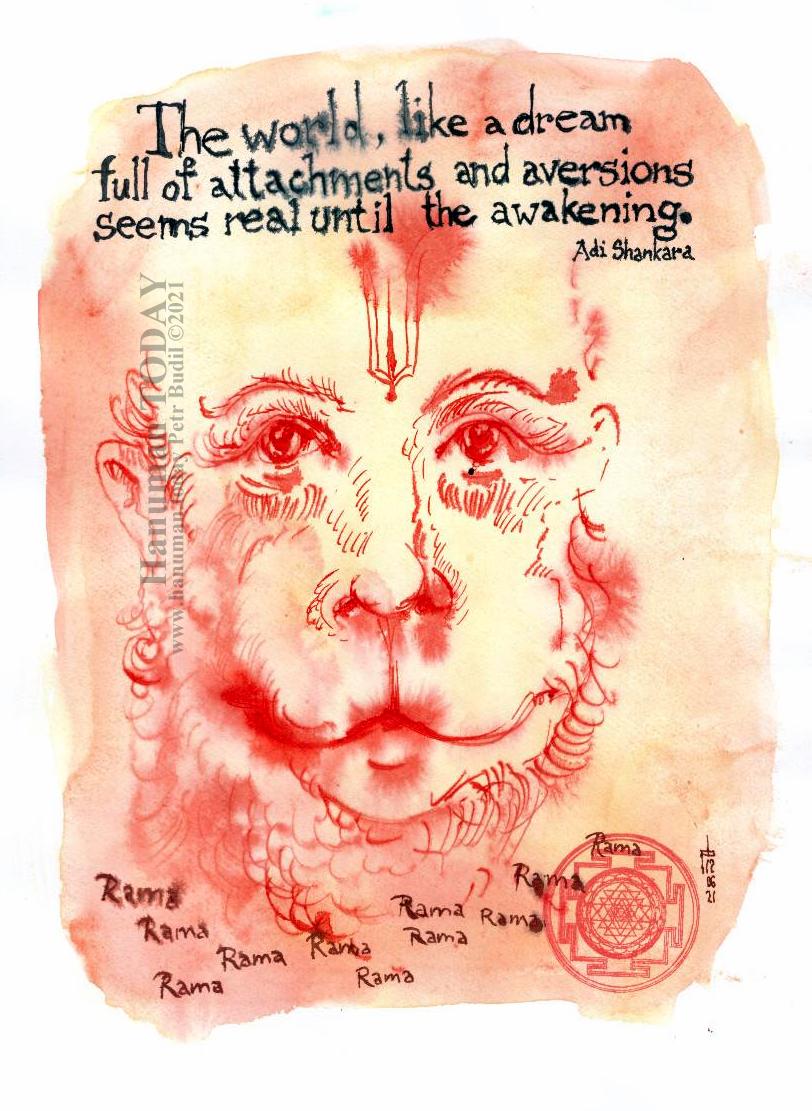 The world, like a dream
full of attachments and aversions
seems real until the awakening.
Adi Shankara
Hanuman TODAY
www.hanuman.today Petr Budil ©2021
Rama
Rama
Rama
Rama
Rama
Rama
Rama
Rama
Rama
Rama
Rama
12 06 21